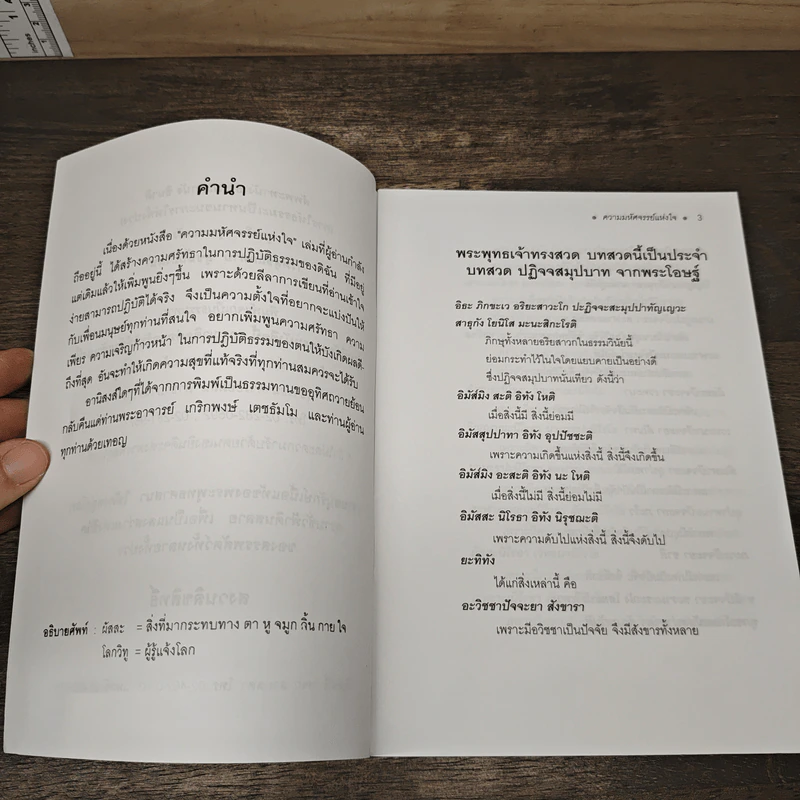 คำนำ
เนื่องด้วยหนังสือ "ความมหัศจรรย์แห่งใจ" เล่มที่ผู้อ่านกำลัง
ถืออยู่นี้ ได้สร้างความศรัทธาในการปฏิบัติธรรมของดิฉัน ที่มีอยู่
แต่เดิมแล้วให้เพิ่มพูนยิ่งๆขึ้น เพราะด้วยลีลาการเขียนที่อ่านเข้าใจ
ง่ายสามารถปฏิบัติได้จริง จึงเป็นความตั้งใจที่อยากจะแบ่งปันให้
กับเพื่อนมนุษย์ทุกท่านที่สนใจ อยากเพิ่มพูนความศรัทธา ความ
เพียร ความเจริญก้าวหน้า ในการปฏิบัติธรรมของตนให้บังเกิดผลดี
ถึงที่สุด อันจะทำให้เกิดความสุขที่แท้จริงที่ทุกท่านสมควรจะได้รับ
อานิสงส์ใดๆที่ได้จากการพิมพ์เป็นธรรมทานขออุทิศถวายย้อน
กลับคืนแด่ท่านพระอาจารย์ เกริกพงษ์ เตชธัมโม และท่านผู้อ่าน
ทุกท่านด้วยเทอญ
อธิบายศัพท์ : ผัสสะ = สิ่งที่มากระทบทาง ตา หู จมูก ลิ้น กาย ใจ
โลกวิทู = ผู้รู้แจ้งโลก
● ความมหัศจรรย์แห่งใจ ● 3
พระพุทธเจ้าทรงสวด บทสวดนี้เป็นประจำ
บทสวด ปฏิจจสมุปบาท จากพระโอษฐ์
อิธะ ภิกขะเว อริยะสาวะโก ปะฏิจจะสะมุปปาทัญเญวะ
สาธุกัง โยนิโส มะนะสิกะโรติ
ภิกษุทั้งหลายอริยสาวกในธรรมวินัยนี้
ย่อมกระทำไว้ในใจโดยแยบคายเป็นอย่างดี
ซึ่งปฏิจจสมุปบาทนั่นเทียว ดังนี้ว่า
อิมัสมิง สะติ อิทัง โหติ
เมื่อสิ่งนี้มี สิ่งนี้ย่อมมี
อิมัสสุปปาทา อิทัง อุปปัชชะติ
เพราะความเกิดขึ้นแห่งสิ่งนี้ สิ่งนี้จึงเกิดขึ้น
อิมัสมิง อะสะติ อิทัง นะ โหติ
เมื่อสิ่งนี้ไม่มี สิ่งนี้ย่อมไม่มี
อิมัสสะ นิโรธา อิทัง นิรุชฌะติ
เพราะความดับไปแห่งสิ่งนี้ สิ่งนี้จึงดับไป
ยะทิทัง
ได้แก่สิ่งเหล่านี้ คือ
อะวิชชาปัจจะยา สังขารา
เพราะมีอวิชชาเป็นปัจจัย จึงมีสังขารทั้งหลาย